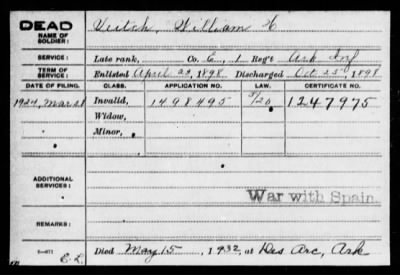 DEAD
NAME OF SOLDIER: Veitch, William H
SERVICE: Late rank, Co. E, 1 Reg't Ark Inf
TERM OF SERVICE: Enlisted April 23, 1898. Discharged Oct 25, 1898
DATE OF FILING. CLASS. APPLICATION NO. LAW. CERTIFICATE NO.
1924, Mar 28 Invalid, 1498495 5/20 1247975
Widow,
Minor,
ADDITIONAL SERVICES:
War with Spain.
REMARKS:
Died May 15, 1932, at Des Arc, Ark